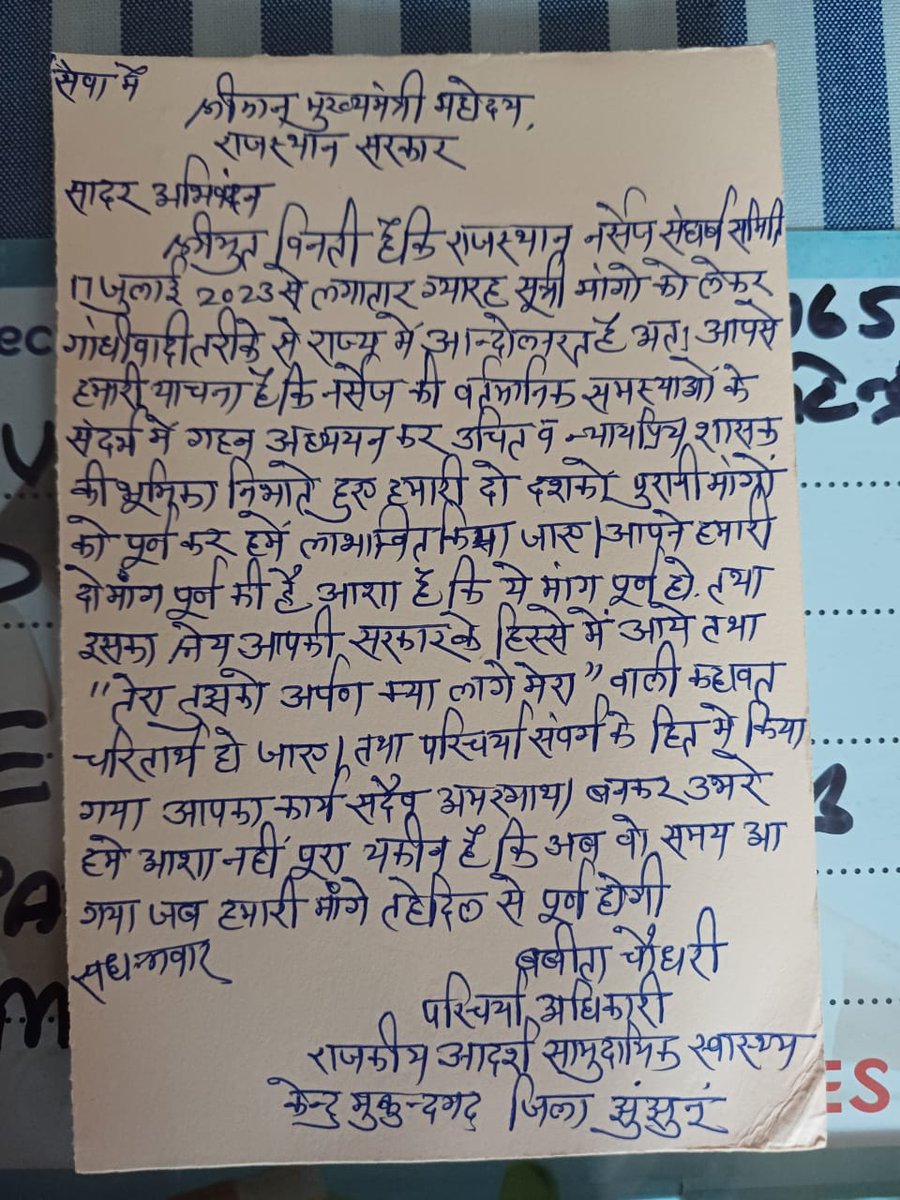 सेवा में
श्रीमान् मुख्यमंत्री महोदय,
राजस्थान सरकार
सादर अभिवंदन
श्रीयुत विनती है कि राजस्थान नर्सेज संघर्ष समिति
17 जुलाई 2023 से लगातार ग्यारह सूत्री मांगो को लेकर
गांधीवादी तरीके से राज्य में आन्दोलनरत है अतः आपसे
हमारी याचना है कि नर्सेज की वर्तमानिक समस्याओं के
संदर्भ में गहन अध्ययन कर उचित व न्यायप्रिय शासक
की भूमिका निभाते हुए हमारी दो दशकों पुरानी मांगों
को पूर्ण कर हमें लाभान्वित किया जाए। आपने हमारी
दो मांग पूर्ण की है आशा है कि ये मांग पूर्ण हो. तथा
इसका श्रेय आपकी सरकार के हिस्से में आये तथा
"तेरा तुझको अर्पण क्या लागे मेरा" वाली कहावत
चरितार्थ हो जाए। तथा परिचर्या संवर्ग के हित में किया
गया आपका कार्य सदैव अमरगाथा बनकर उभरे
हमे आशा नहीं पूरा यकीन है कि अब वो समय आ
गया जब हमारी माँगे तहेदिल से पूर्ण होगी
सधन्यवाद
बबीता चौधरी
परिचर्या अधिकारी
राजकीय आदर्श सामुदायिक स्वास्थ्य
केन्द्र मुकुन्दगढ़ जिला झुंझुनूं
065
ES